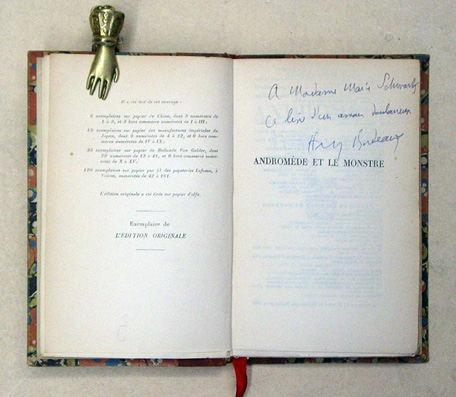 Il a été tiré de cet ouvrage :
6 exemplaires sur papier de Chine, dont 3 numérotés de
1 à 3, et 3 hors commerce numérotés de I à III ;
15 exemplaires sur papier des manufactures impériales du
Japon, dont 9 numérotés de 4 à 12, et 6 hors
commerce numérotés de IV à IX ;
35 exemplaires sur papier de Hollande Van Gelder, dont
29 numérotés de 13 à 41, et 6 hors commerce numérotés
de X à XV ;
120 exemplaires sur pur fil des papeteries Lafuma, à
Voiron, numérotés de 42 à 161.
L'édition originale a été tirée sur papier d'alfa.
Exemplaire de
L'EDITION ORIGINALE
A Madame Marie Schwartz
ce livre d'un amour douloureux
Henry Bordeaux
ANDROMÈDE ET LE MONSTRE